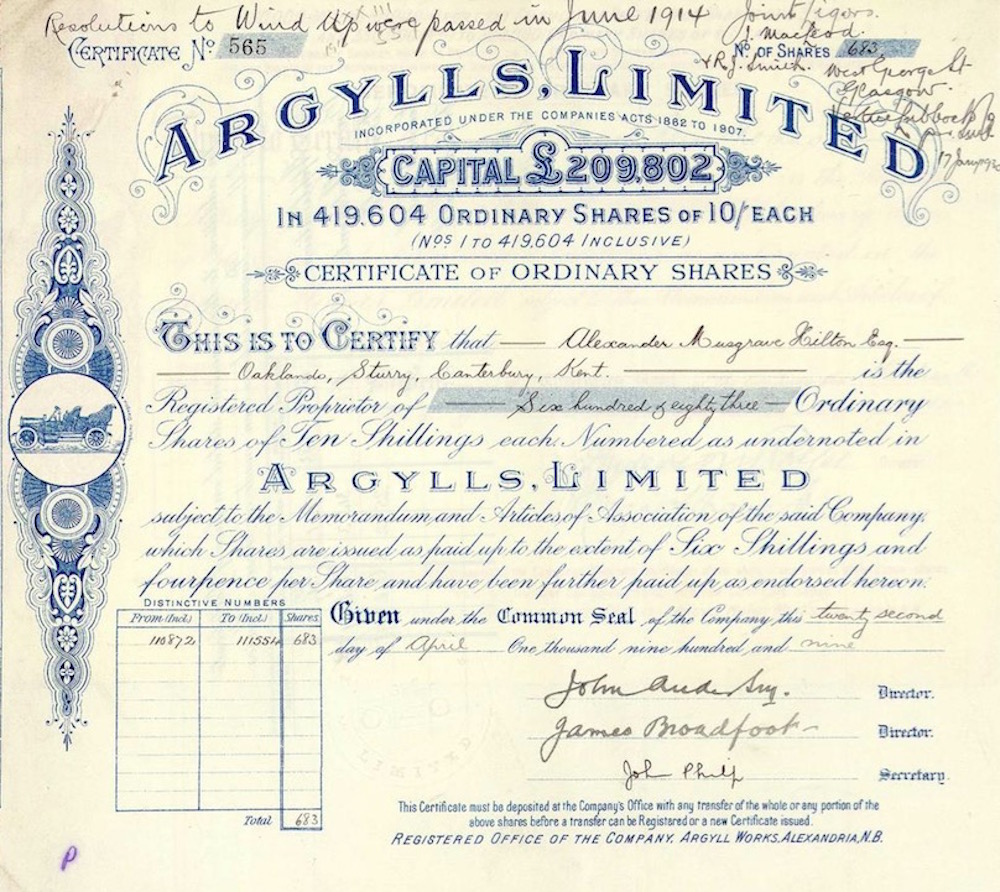 Resolutions to Wind Up were passed in June 1914
Joint Liqors.
J. Macleod.
& R. J. Smith.
West George St
Glasgow.
17 Jany
CERTIFICATE No 565
No. OF SHARES 683
ARGYLLS, LIMITED
INCORPORATED UNDER THE COMPANIES ACTS 1862 TO 1907.
CAPITAL £209,802
IN 419,604 ORDINARY SHARES OF 10/ EACH
(Nos 1 TO 419,604 INCLUSIVE)
CERTIFICATE OF ORDINARY SHARES
THIS IS TO CERTIFY that Alexander Musgrave Hilton Esq.
Oaklands, Sturry, Canterbury, Kent. is the
Registered Proprietor of Six hundred & eighty three Ordinary
Shares of Ten Shillings each. Numbered as undernoted in
ARGYLLS, LIMITED
subject to the Memorandum and Articles of Association of the said Company,
which Shares, are issued as paid up to the extent of Six Shillings and
fourpence per Share and have been further paid up as endorsed hereon.
DISTINCTIVE NUMBERS
From (Incl.) To (Incl.) Shares
110872 111554 683
Total 683
Given under the Common Seal of the Company this twenty second
day of April One thousand nine hundred and nine
John Anderson. Director.
James Broadfoot Director.
John Philp Secretary.
This Certificate must be deposited at the Company's Office with any transfer of the whole or any portion of the
above shares before a transfer can be Registered or a new Certificate issued.
REGISTERED OFFICE OF THE COMPANY, ARGYLL WORKS, ALEXANDRIA, N.B.
P